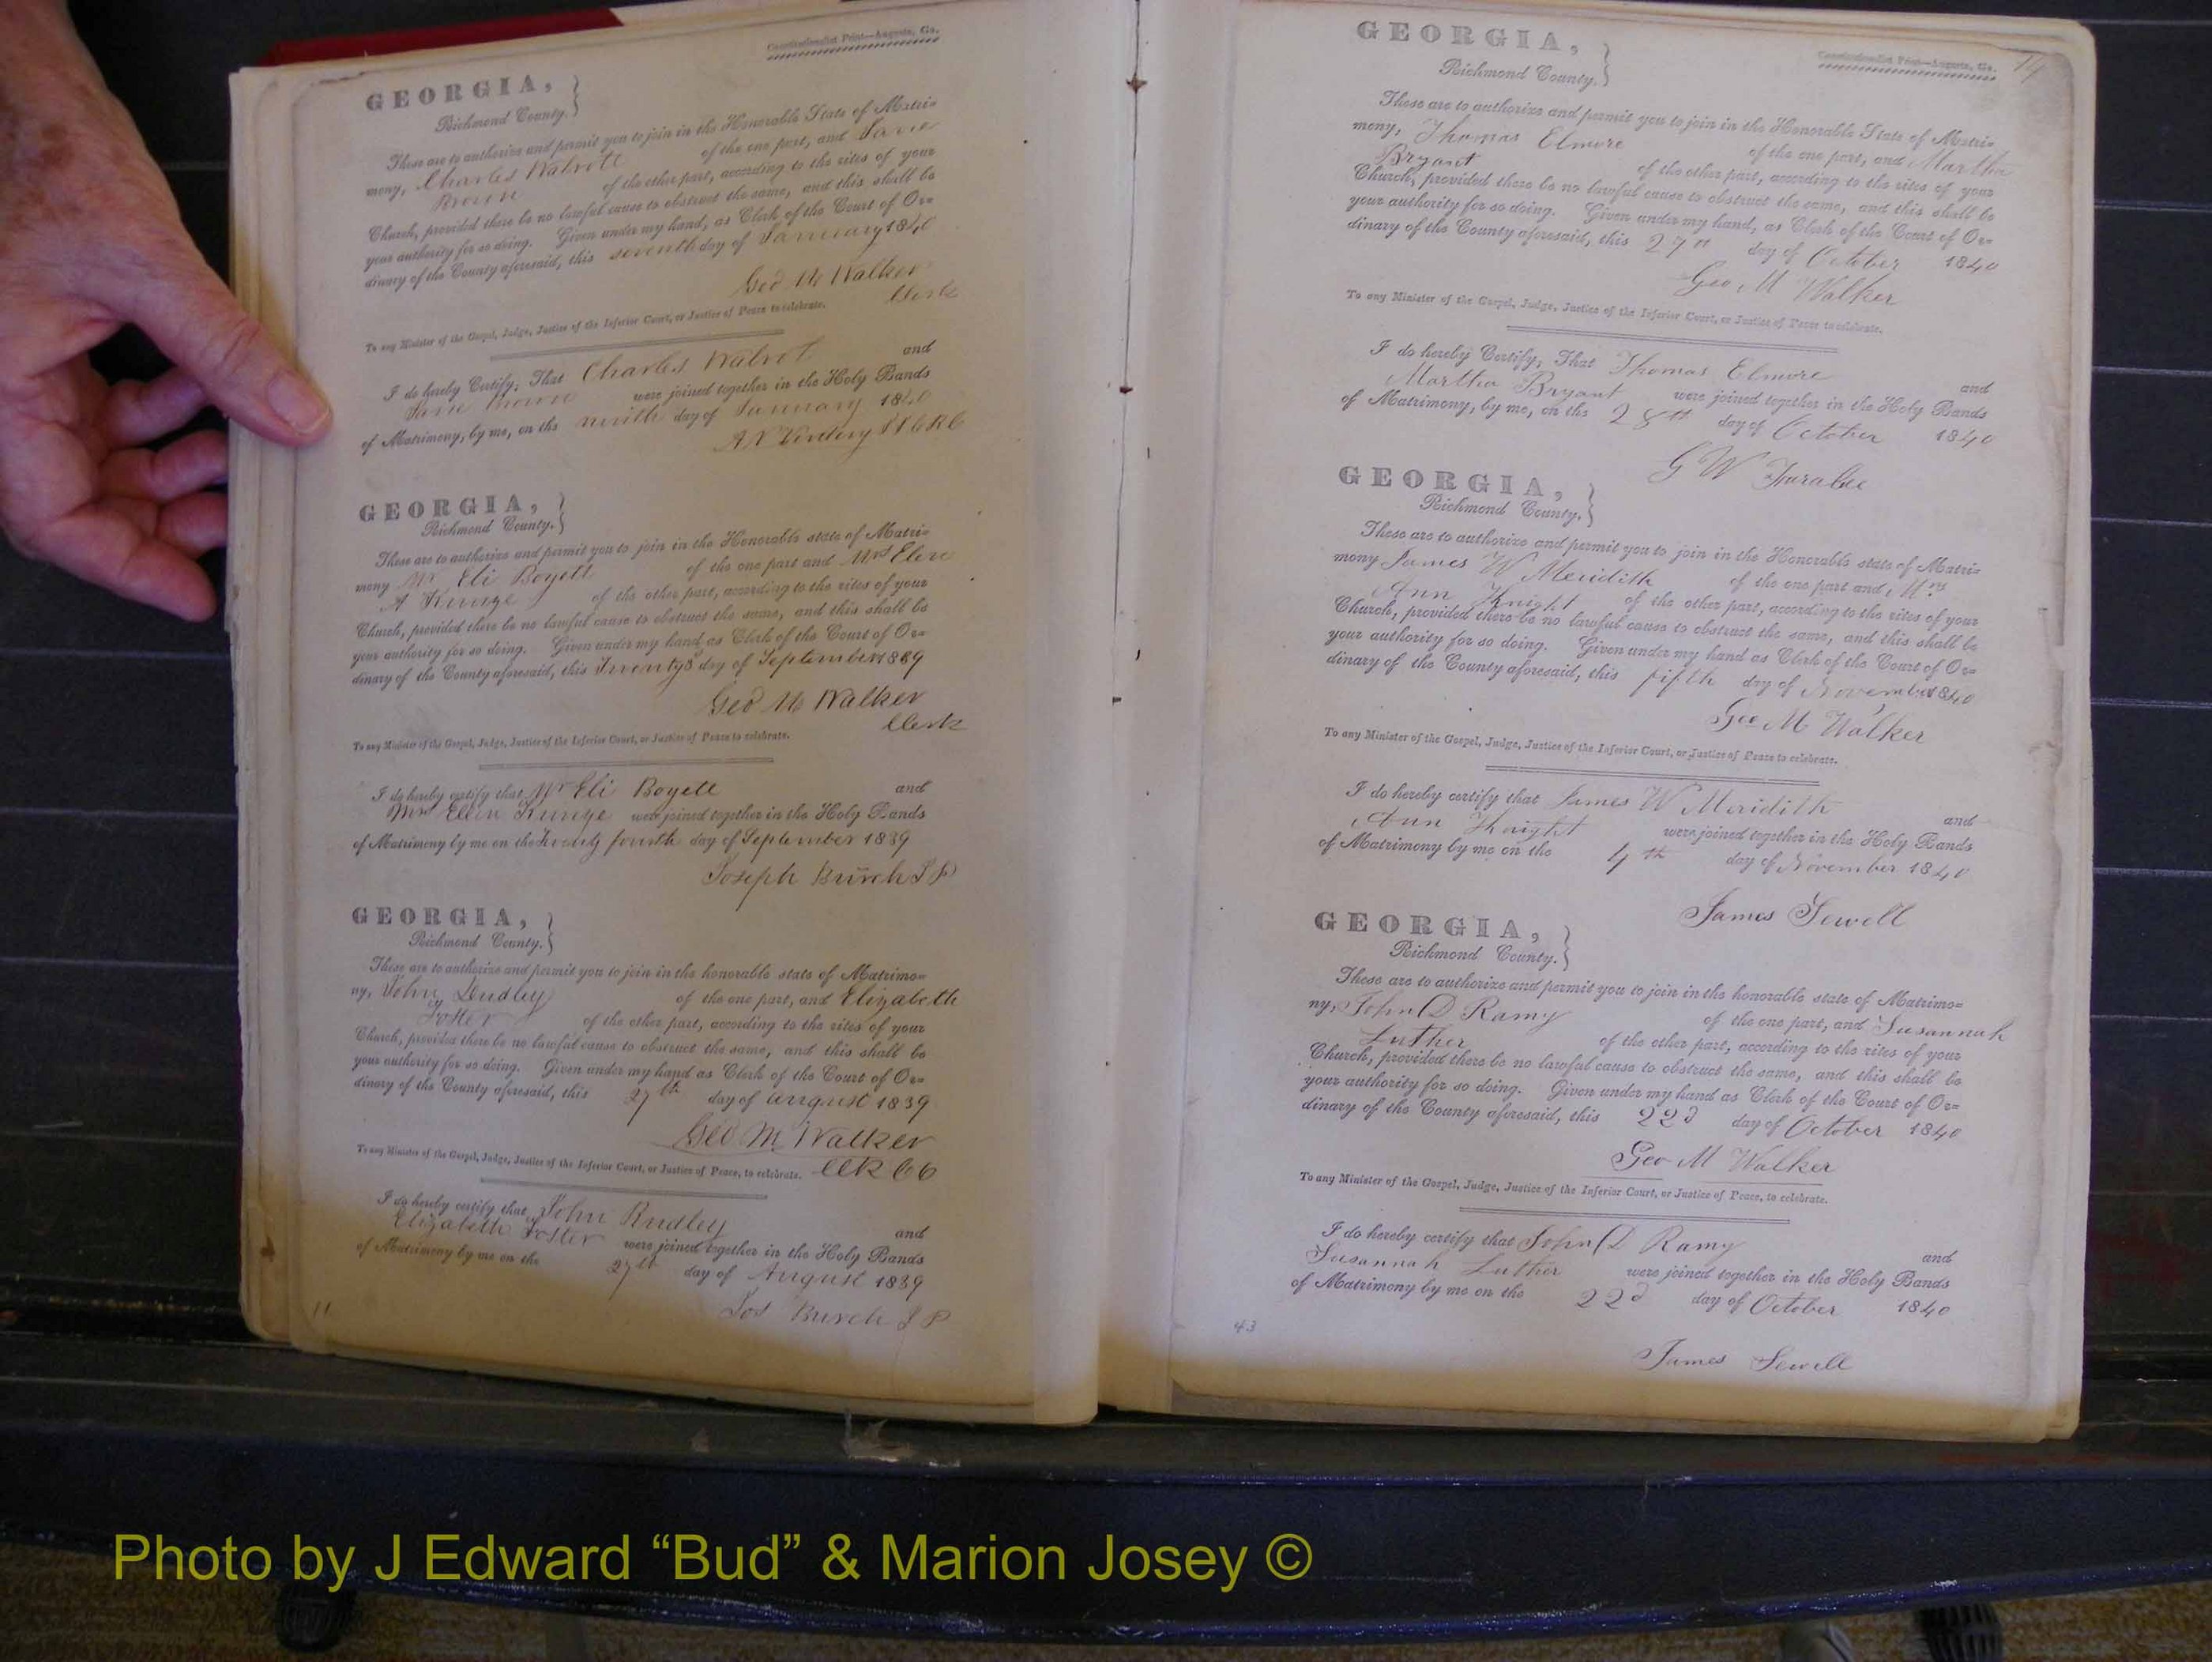 Constitutionalist Print—Augusta, Ga.
GEORGIA,
Richmond County.
These are to authorize and permit you to join in the Honorable State of Matri-
mony, Charles Walrott of the one part, and Jane
of the other part, according to the rites of your
Church, provided there be no lawful cause to obstruct the same, and this shall be
your authority for so doing. Given under my hand, as Clerk of the Court of Or-
dinary of the County aforesaid, this seventh day of January 1840
Geo M Walker
Clerk
To any Minister of the Gospel, Judge, Justice of the Inferior Court, or Justice of Peace to celebrate.
I do hereby Certify, That Charles Walrot and
Jane were joined together in the Holy Bands
of Matrimony, by me, on the ninth day of January 1840
GEORGIA,
Richmond County.
These are to authorize and permit you to join in the Honorable state of Matri-
mony Mr Eli Boyett of the one part and Mrs
A of the other part, according to the rites of your
Church, provided there be no lawful cause to obstruct the same, and this shall be
your authority for so doing. Given under my hand as Clerk of the Court of Or-
dinary of the County aforesaid, this day of September 1839
Geo M Walker
Clerk
To any Minister of the Gospel, Judge, Justice of the Inferior Court, or Justice of Peace to celebrate.
I do hereby certify that Mr Eli Boyett and
Mrs Ellen were joined together in the Holy Bands
of Matrimony by me on the twenty fourth day of September 1839
Joseph Burch J P
GEORGIA,
Richmond County.
These are to authorize and permit you to join in the honorable state of Matrimo-
ny, John Dudley of the one part, and Elizabeth
Foster of the other part, according to the rites of your
Church, provided there be no lawful cause to obstruct the same, and this shall be
your authority for so doing. Given under my hand as Clerk of the Court of Or-
dinary of the County aforesaid, this 27th day of August 1839
Geo M Walker
To any Minister of the Gospel, Judge, Justice of the Inferior Court, or Justice of Peace, to celebrate.
I do hereby certify that John and
Elizabeth Foster were joined together in the Holy Bands
of Matrimony by me on the 27th day of August 1839
Jos Burch J P
11
Constitutionalist Print—Augusta, Ga.
14
GEORGIA,
Richmond County.
These are to authorize and permit you to join in the Honorable State of Matri-
mony, Thomas Elmore of the one part, and Martha
Bryant of the other part, according to the rites of your
Church, provided there be no lawful cause to obstruct the same, and this shall be
your authority for so doing. Given under my hand, as Clerk of the Court of Or-
dinary of the County aforesaid, this 27th day of October 1840
Geo M Walker
To any Minister of the Gospel, Judge, Justice of the Inferior Court, or Justice of Peace to celebrate.
I do hereby Certify, That Thomas Elmore and
Martha Bryant were joined together in the Holy Bands
of Matrimony, by me, on the 28th day of October 1840
G W
GEORGIA,
Richmond County.
These are to authorize and permit you to join in the Honorable state of Matri-
mony James W Meridith of the one part and Mrs
Ann Knight of the other part, according to the rites of your
Church, provided there be no lawful cause to obstruct the same, and this shall be
your authority for so doing. Given under my hand as Clerk of the Court of Or-
dinary of the County aforesaid, this fifth day of November 1840
Geo M Walker
To any Minister of the Gospel, Judge, Justice of the Inferior Court, or Justice of Peace to celebrate.
I do hereby certify that James W Meridith and
Ann Knight were joined together in the Holy Bands
of Matrimony by me on the 4th day of November 1840
James Sewell
GEORGIA,
Richmond County.
These are to authorize and permit you to join in the honorable state of Matrimo-
ny, John D Ramy of the one part, and Susannah
Luther of the other part, according to the rites of your
Church, provided there be no lawful cause to obstruct the same, and this shall be
your authority for so doing. Given under my hand as Clerk of the Court of Or-
dinary of the County aforesaid, this 22d day of October 1840
Geo M Walker
To any Minister of the Gospel, Judge, Justice of the Inferior Court, or Justice of Peace, to celebrate.
I do hereby certify that John D Ramy and
Susannah Luther were joined together in the Holy Bands
of Matrimony by me on the 22d day of October 1840
43
James Sewell
Photo by J Edward “Bud” & Marion Josey ©